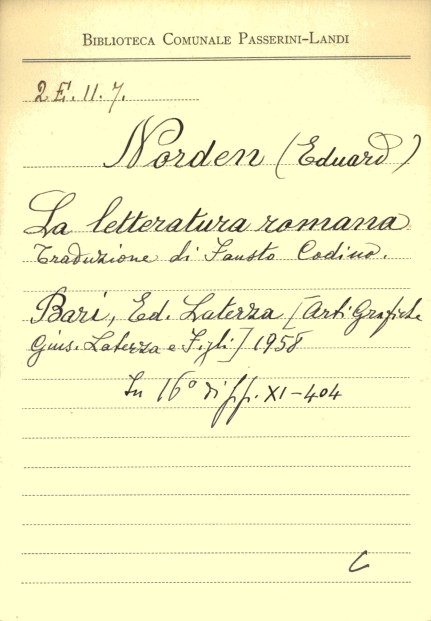 BIBLIOTECA COMUNALE PASSERINI-LANDI
2 E. 11. 7.
Norden (Eduard)
La letteratura romana
Traduzione di Fausto Codino.
Bari, Ed. Laterza [Arti Grafiche
Gius. Laterza e Figli] 1958
In 16° di pp. XI-404
C